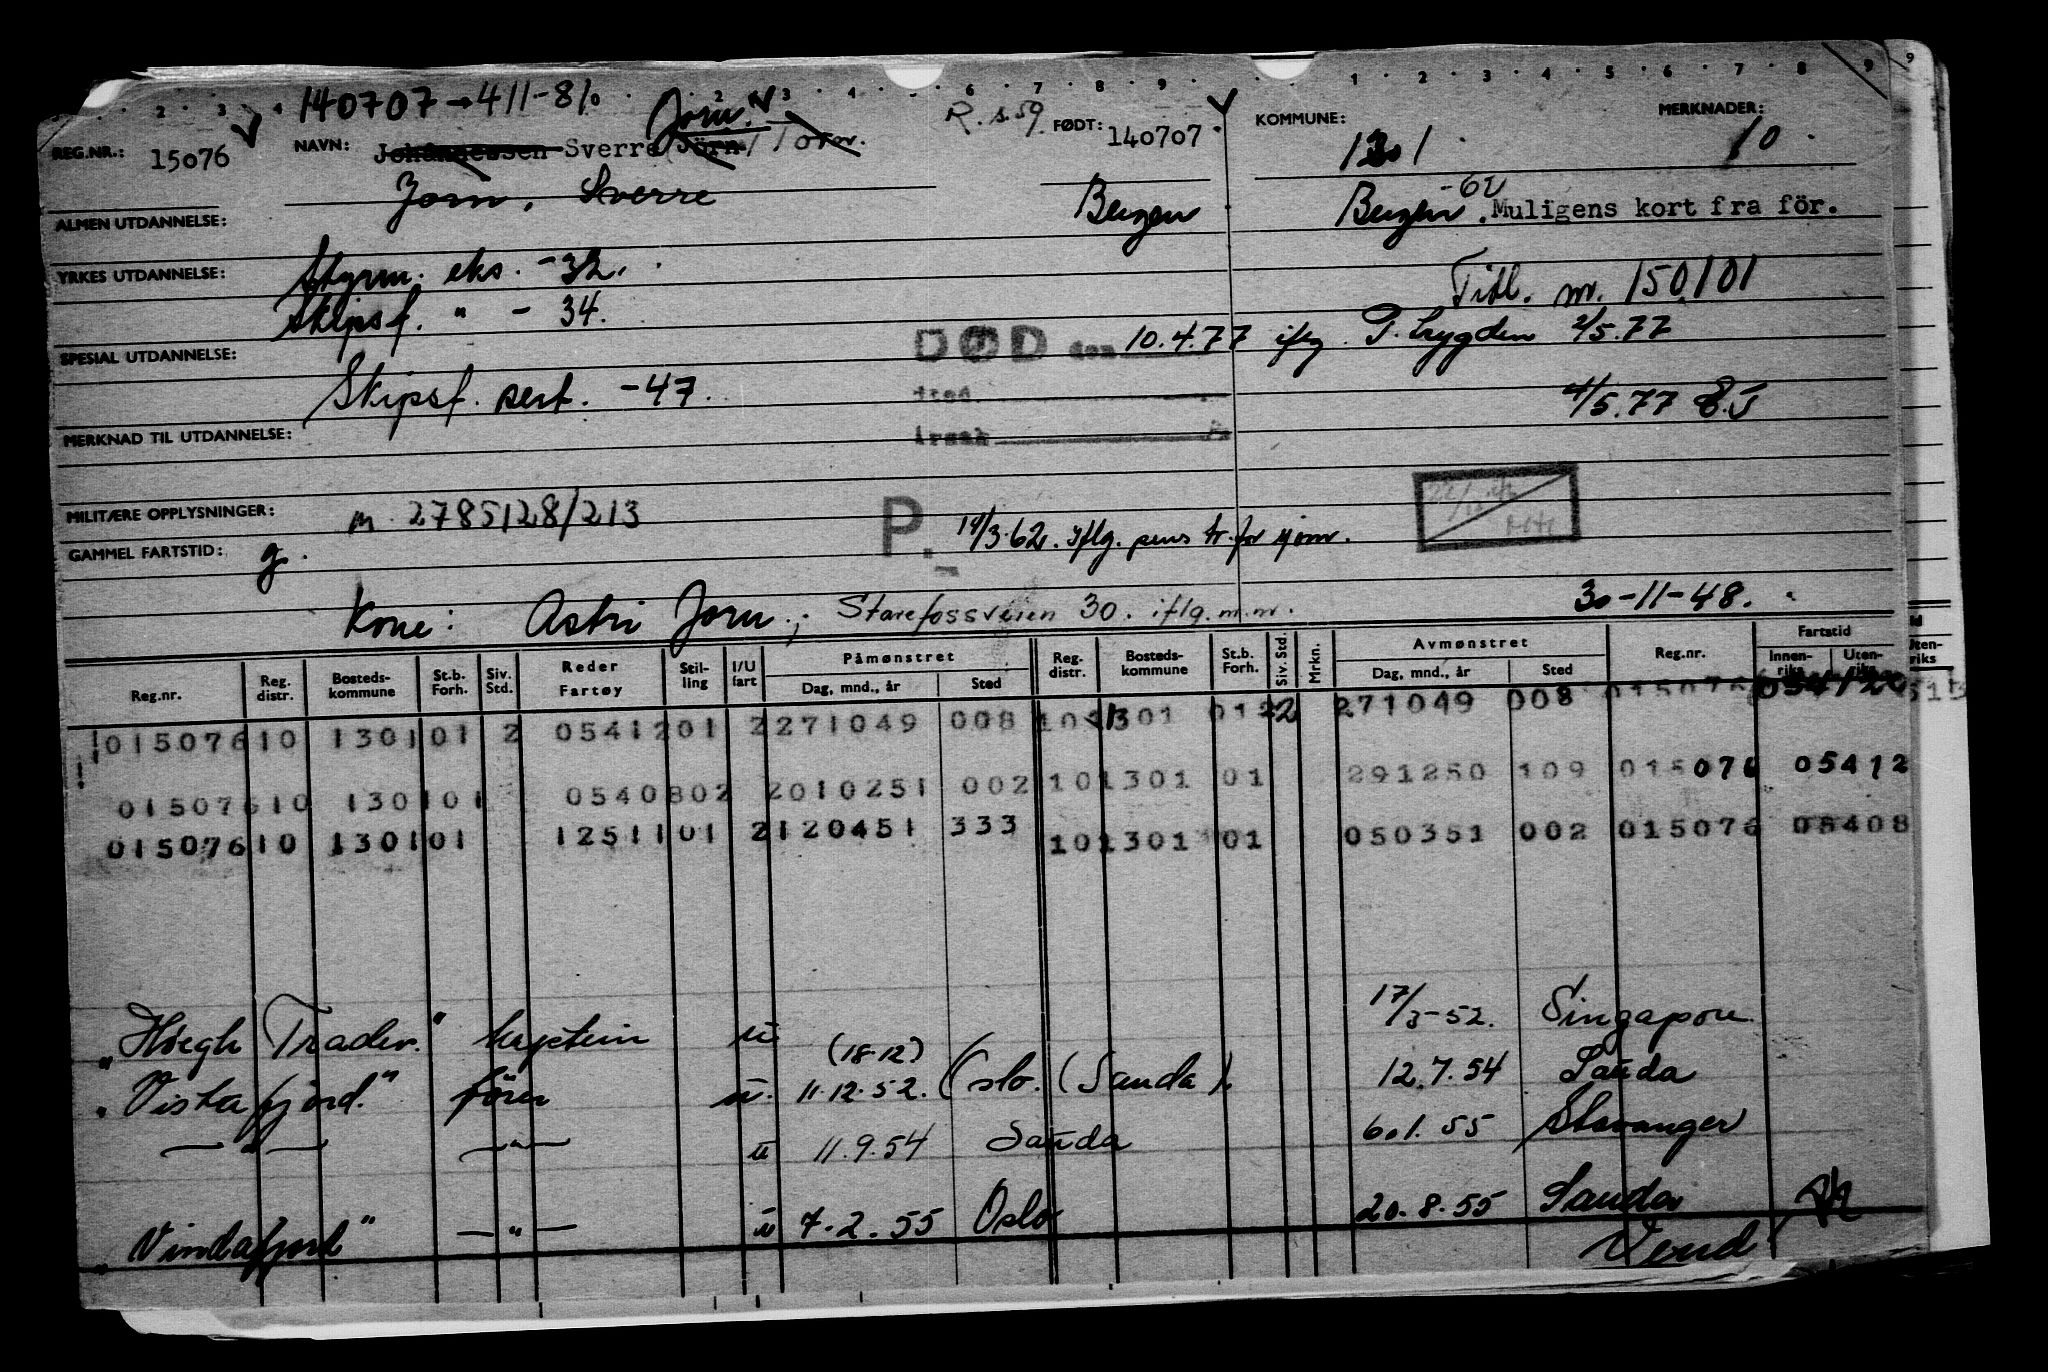 140707 → 411-81.
REG.NR.: 15076 NAVN: Johannessen Sverre (Jörn) Jorn. FØDT: 140707 KOMMUNE: 1301 MERKNADER: 10
R. s. 59
Jorn, Sverre Bergen Bergen -62. Muligens kort fra för.
ALMEN UTDANNELSE:
YRKES UTDANNELSE: Styrm. eks. -32. Tidl. nr. 150101
Skipsf. " - 34.
SPESIAL UTDANNELSE: DØD den 10.4.77 iflg. P. trygden 2/5.77
Skipsf. sert. -47. sted 4/5.77
MERKNAD TIL UTDANNELSE: årsak
MILITÆRE OPPLYSNINGER: m. 2785128/213 P. 14/3.62. iflg. pens tr. for sjöm.
GAMMEL FARTSTID: g.
Kone: Astri Jorn; Starefossveien 30. iflg. m.m. 30-11-48.
Reg.nr. Reg. distr. Bosteds- kommune St.b. Forh. Siv. Std. Reder Fartøy Stil- ling I/U fart Påmønstret Dag, mnd., år Sted Reg. distr. Bosteds- kommune St.b. Forh. Siv. Std. Mrkn. Avmønstret Dag, mnd., år Sted Reg.nr. Fartstid Innen- riks Uten- riks
015076 10 1301 01 2 0541201 2 271049 008 10 1301 01 2 271049 008 015076 054120
015076 10 1301 01 0540802 2 010251 002 10 1301 01 291250 109 015076 05412
015076 10 1301 01 1251101 2 120451 333 10 1301 01 050351 002 015076 05408
"Höegh Trader." kaptein u 17/3-52. Singapore
"Vistafjord." förer u. (18-12) 11.12.52. Oslo. (Sauda) 12.7.54 Sauda
— " — — " — u 11.9.54 Sauda 6.1.55 Stavanger
"Vindafjord" — " — u 7.2.55 Oslo 20.8.55 Sauda
Vend!